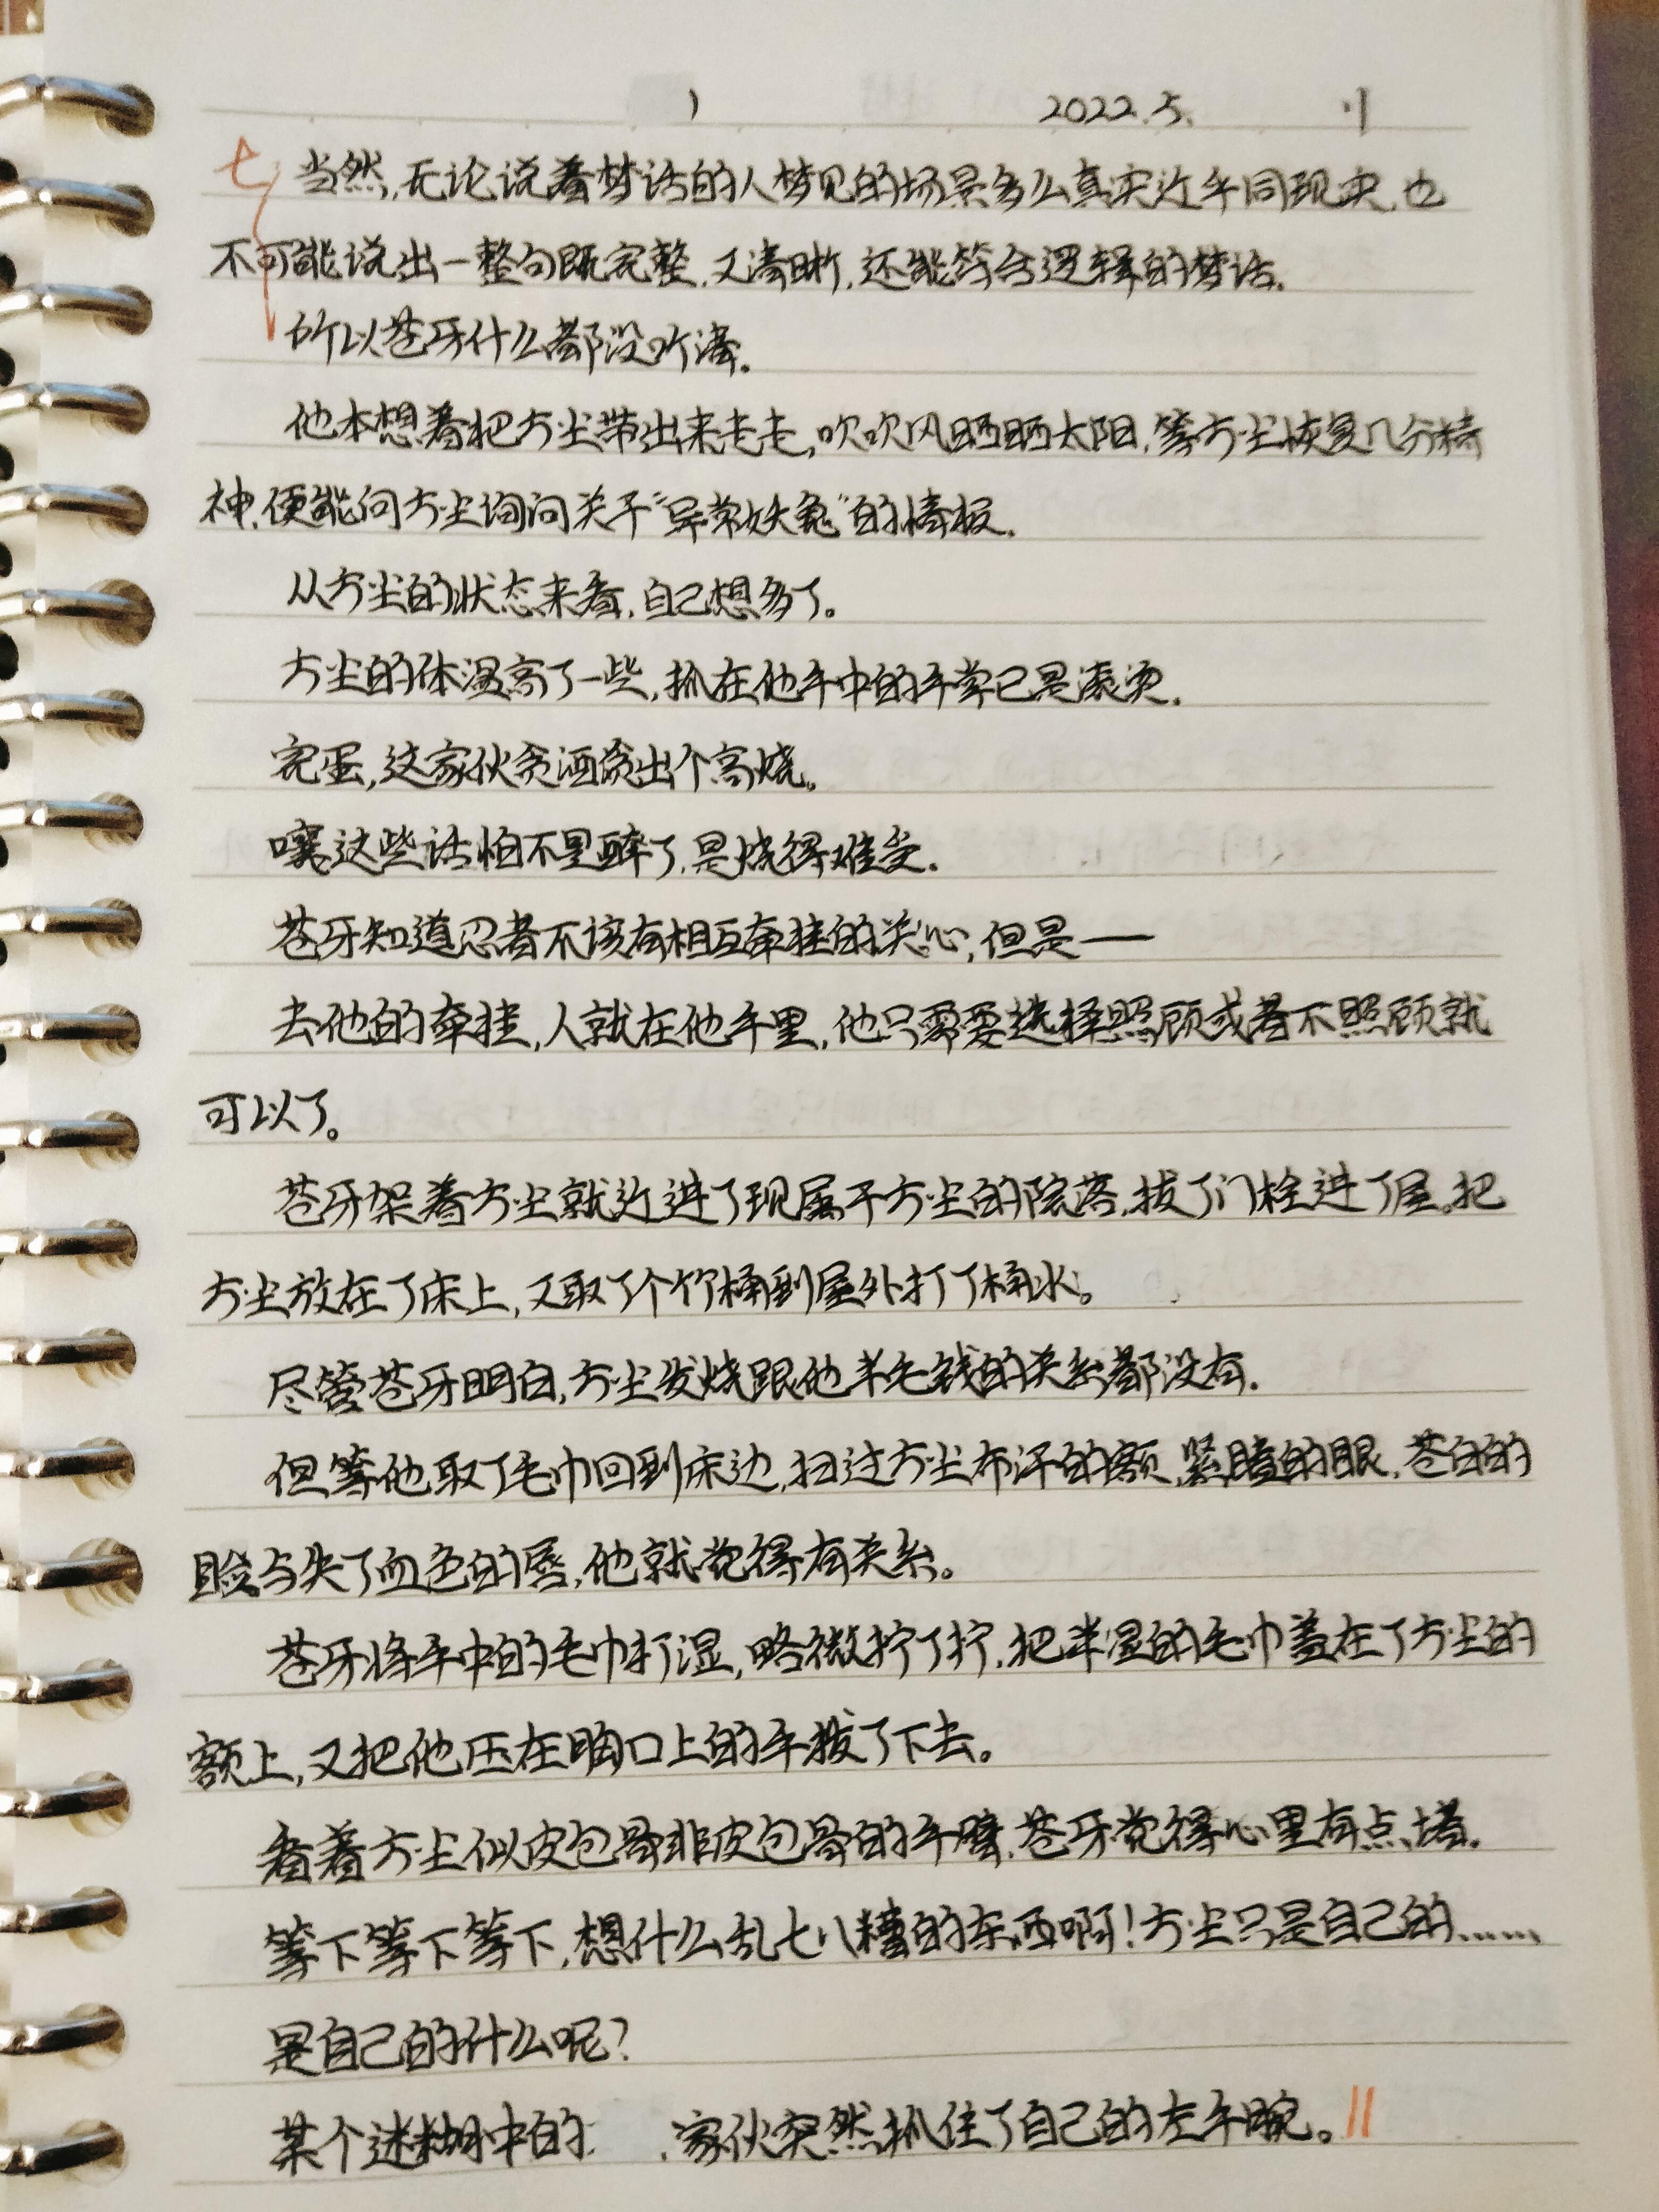 2022.5.
七、当然,无论说着梦话的人梦见的场景多么真实近乎同现实,也
不可能说出一整句既完整,又清晰,还能符合逻辑的梦话.
所以苍牙什么都没听清.
他本想着把方尘带出来走走,吹吹风晒晒太阳,等方尘恢复几分精
神,便能向方尘询问关于“异常妖兔”的情报.
从方尘的状态来看,自己想多了.
方尘的体温高了一些,抓在他手中的手掌已是滚烫.
完蛋,这家伙贪酒贪出个高烧。
嚷这些话怕不是醉了,是烧得难受.
苍牙知道忍者不该有相互牵挂的关心,但是——
去他的牵挂,人就在他手里,他只需要选择照顾或者不照顾就
可以了。
苍牙架着方尘就近进了现属于方尘的院落,拔了门栓进了屋,把
方尘放在了床上,又取了个竹桶到屋外打了桶水。
尽管苍牙明白,方尘发烧跟他半毛钱的关系都没有.
但等他取了毛巾回到床边,扫过方尘布汗的额,紧瞌的眼,苍白的
脸与失了血色的唇,他就觉得有关系。
苍牙将手中的毛巾打湿,略微拧了拧,把半湿的毛巾盖在了方尘的
额上,又把他压在胸口上的手拨了下去。
看着方尘似皮包骨非皮包骨的手臂,苍牙觉得心里有点堵.
等下等下等下,想什么乱七八糟的东西啊!方尘只是自己的……
是自己的什么呢?
某个迷糊中的 家伙突然抓住了自己的左手腕。